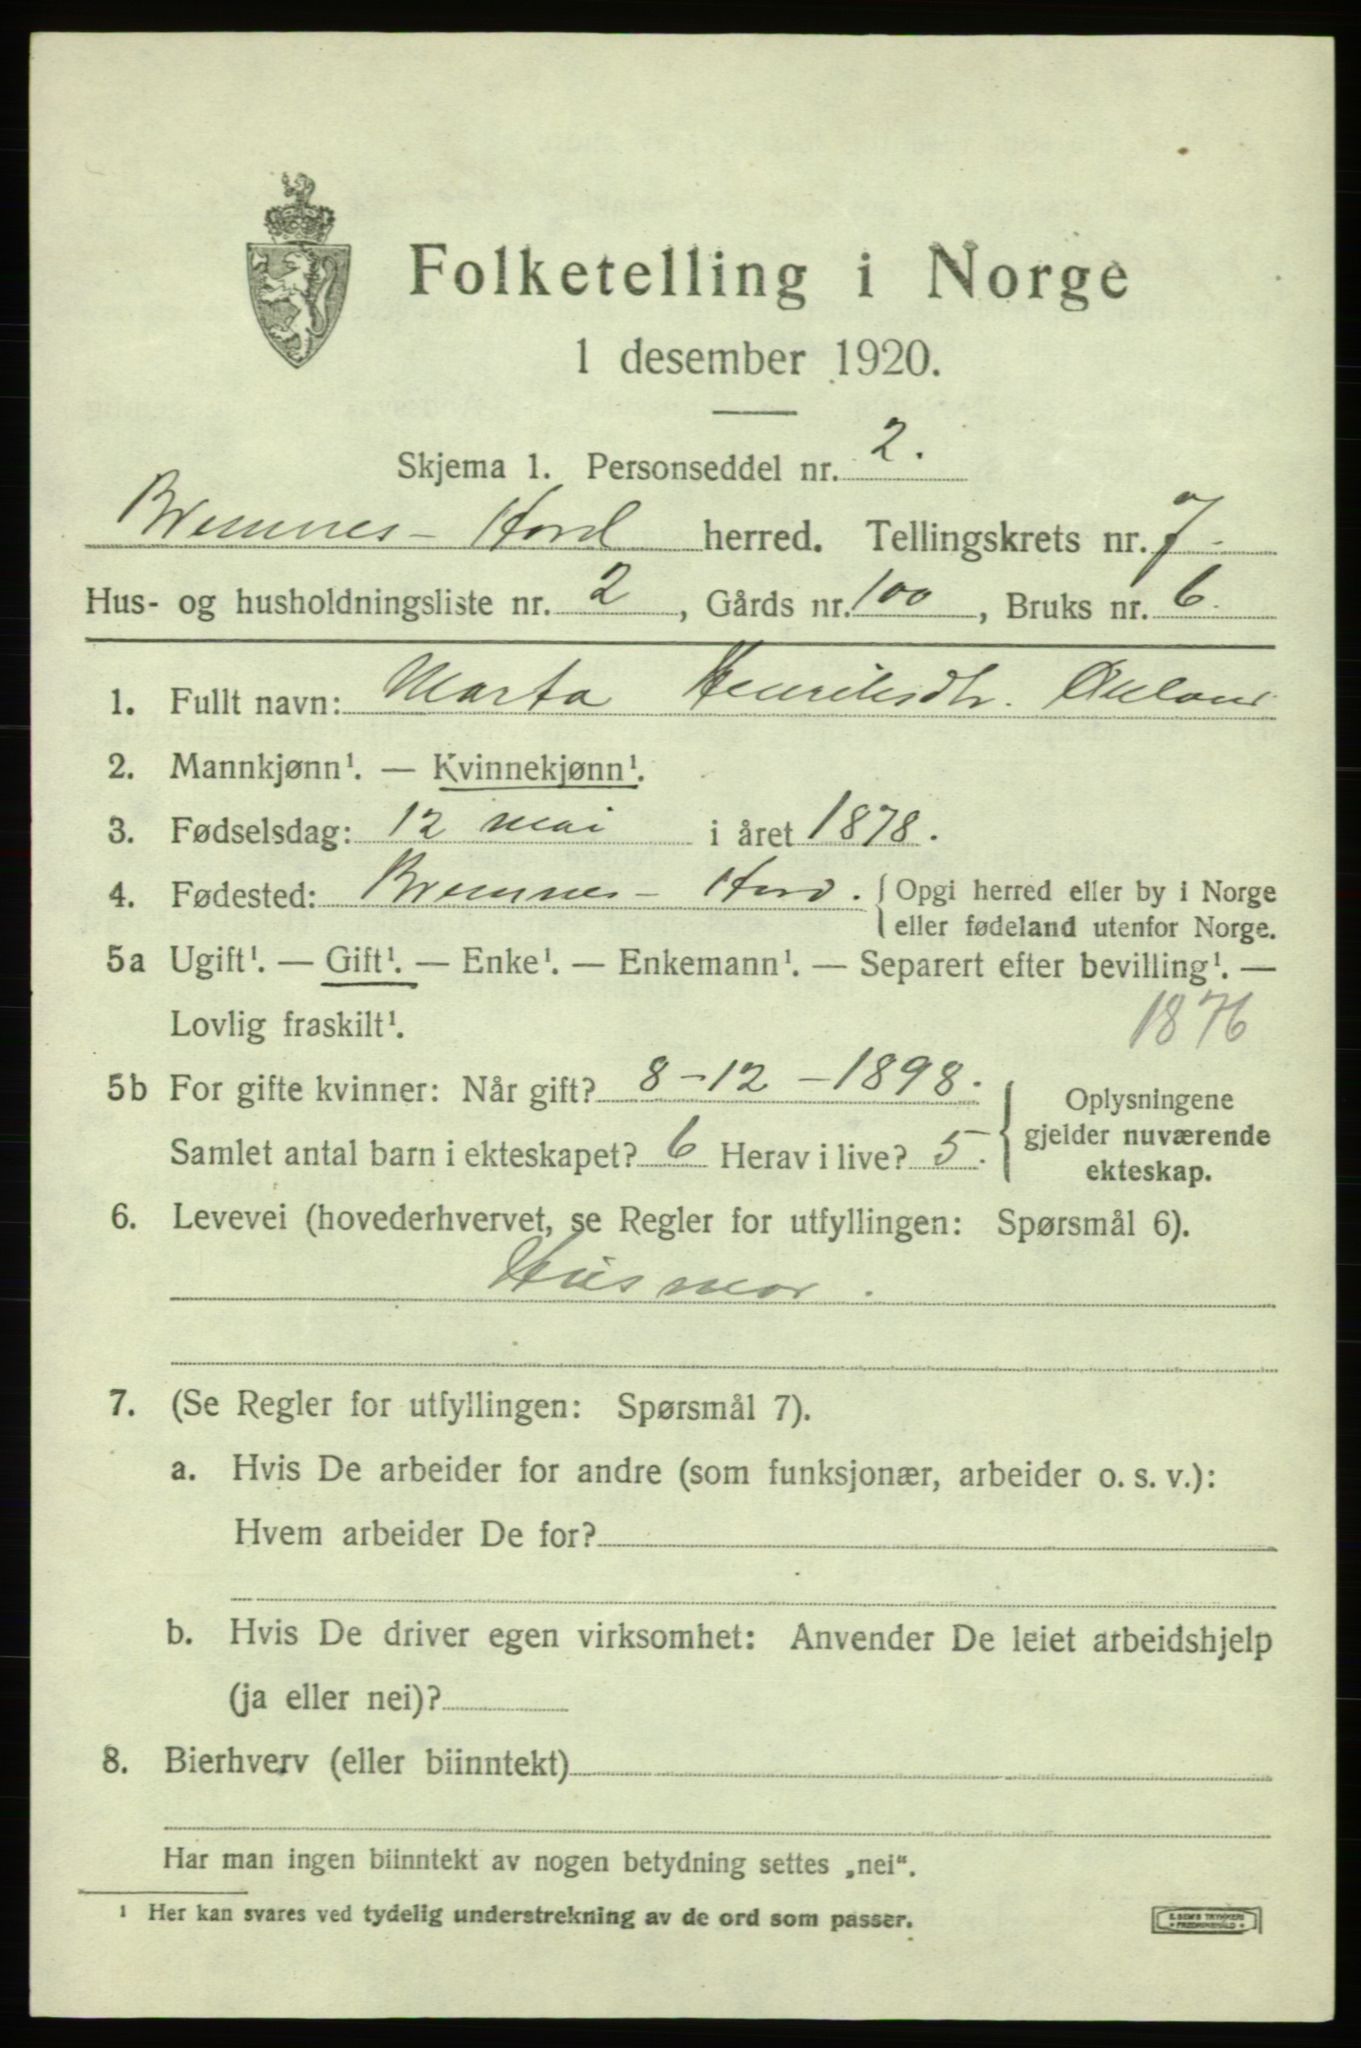 Folketelling i Norge
1 desember 1920.
Skjema 1. Personseddel nr. 2.
Bremnes - Hord herred. Tellingskrets nr. 7.
Hus- og husholdningsliste nr. 2, Gårds nr. 100, Bruks nr. 6.
1. Fullt navn: Marta Henriksdtr.
2. Mannkjønn¹. — Kvinnekjønn¹.
3. Fødselsdag: 12 mai i året 1878.
4. Fødested: Bremnes - Hord. { Opgi herred eller by i Norge
eller fødeland utenfor Norge.
5a Ugift¹. — Gift¹. — Enke¹. — Enkemann¹. — Separert efter bevilling¹. —
Lovlig fraskilt¹. 1876
5b For gifte kvinner: Når gift? 8-12-1898.
Samlet antal barn i ekteskapet? 6 Herav i live? 5.
{ Oplysningene
gjelder nuværende
ekteskap.
6. Levevei (hovederhvervet, se Regler for utfyllingen: Spørsmål 6).
Husmor.
7. (Se Regler for utfyllingen: Spørsmål 7).
a. Hvis De arbeider for andre (som funksjonær, arbeider o. s. v.):
Hvem arbeider De for?
b. Hvis De driver egen virksomhet: Anvender De leiet arbeidshjelp
(ja eller nei)?
8. Bierhverv (eller biinntekt)
Har man ingen biinntekt av nogen betydning settes „nei“.
¹ Her kan svares ved tydelig understrekning av de ord som passer.